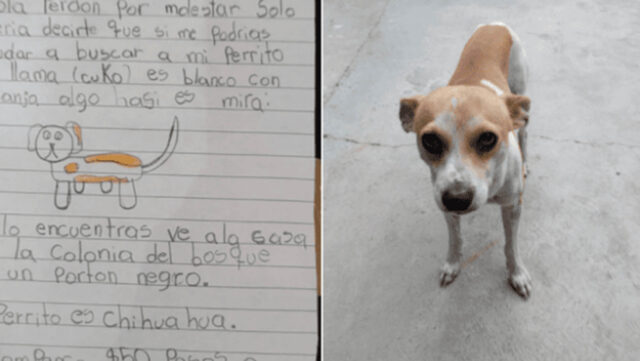 ola Perdon por molestar Solo
eria decirte que si me podrias
udar a buscar a mi perrito
llama (cuko) es blanco con
anja algo hasi es mira:
lo encuentras ve ala casa
la Colonia del bosque
un Porton negro.
Perrito es Chihuahua.
$50 Pesos